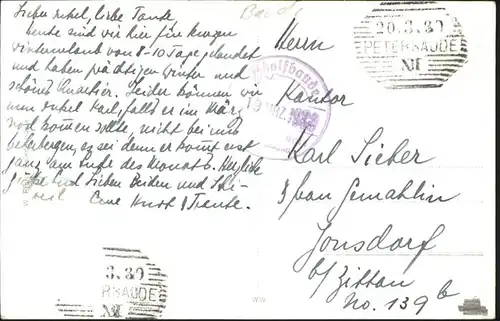 Lieber Onkel, liebe Tante
heute sind wir hier für kurzen
Winterurlaub von 8-10 Tage gelandet
und haben prächtigen Winter und
schönes Quartier. Leider können wir
Onkel Karl, falls er im März
noch kommen sollte, nicht bei uns
beherbergen, es sei denn er kommt erst
ganz am Ende des Monats. Herzliche
Grüße Euch Lieben Beiden und Ski-
heil Eure Knost &
Herrn
Kantor
Karl Sieber
Frau Gemahlin
Jonsdorf
b/Zittau
No. 139 b
20.3.39
PETERBAUDE
XII
3.39
RBAUDE
XII